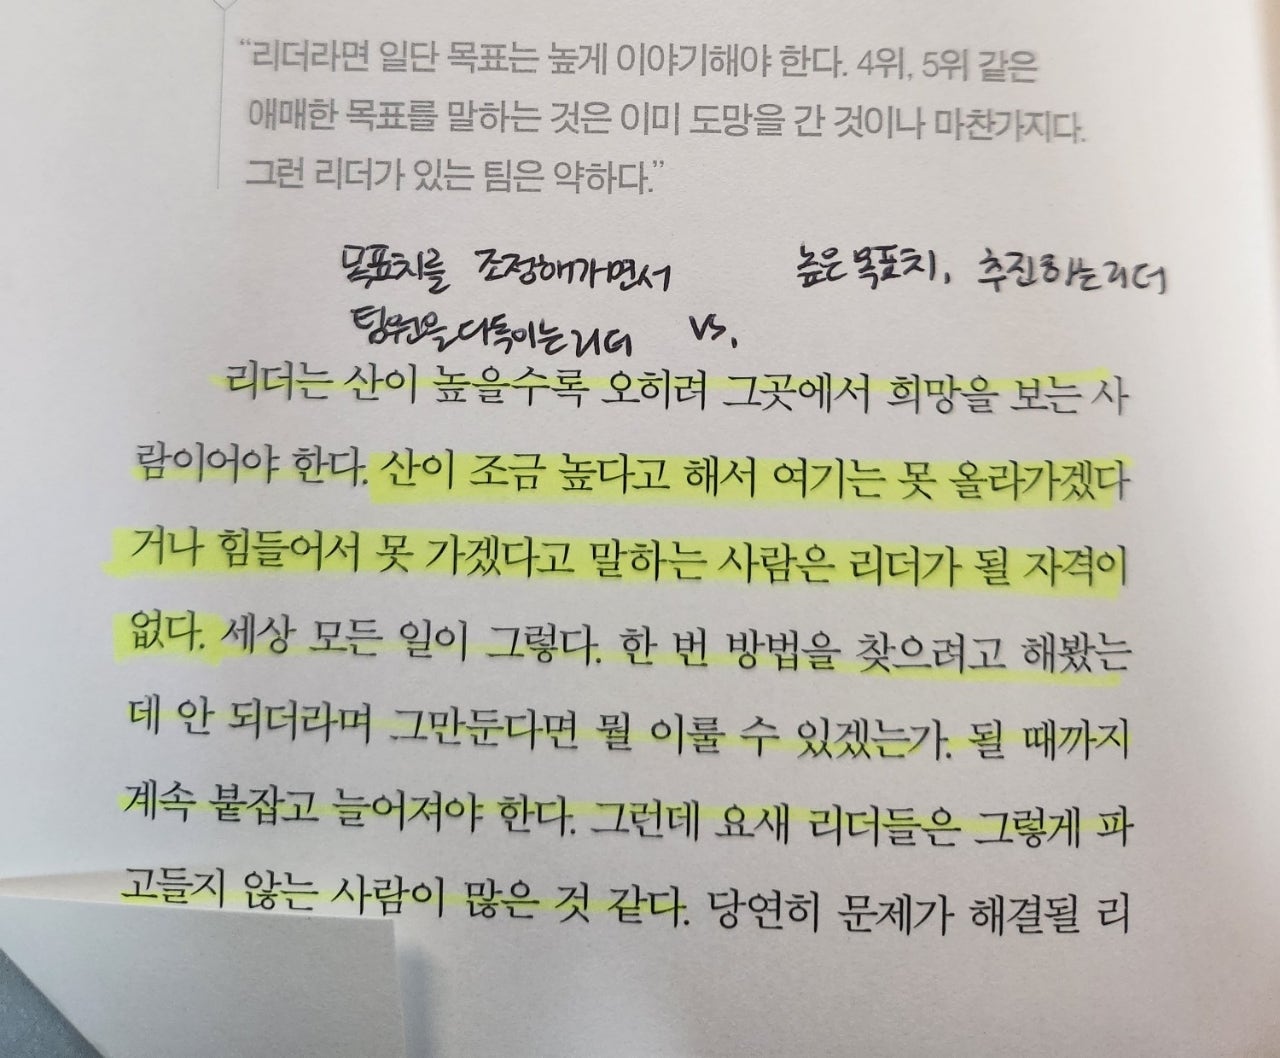 “리더라면 일단 목표는 높게 이야기해야 한다. 4위, 5위 같은
애매한 목표를 말하는 것은 이미 도망을 간 것이나 마찬가지다.
그런 리더가 있는 팀은 약하다.”
목표치를 조정해가면서 높은 목표치, 추진하는 리더
팀원을 다독이는 리더 vs.
리더는 산이 높을수록 오히려 그곳에서 희망을 보는 사
람이어야 한다. 산이 조금 높다고 해서 여기는 못 올라가겠다
거나 힘들어서 못 가겠다고 말하는 사람은 리더가 될 자격이
없다. 세상 모든 일이 그렇다. 한 번 방법을 찾으려고 해봤는
데 안 되더라며 그만둔다면 뭘 이룰 수 있겠는가. 될 때까지
계속 붙잡고 늘어져야 한다. 그런데 요새 리더들은 그렇게 파
고들지 않는 사람이 많은 것 같다. 당연히 문제가 해결될 리